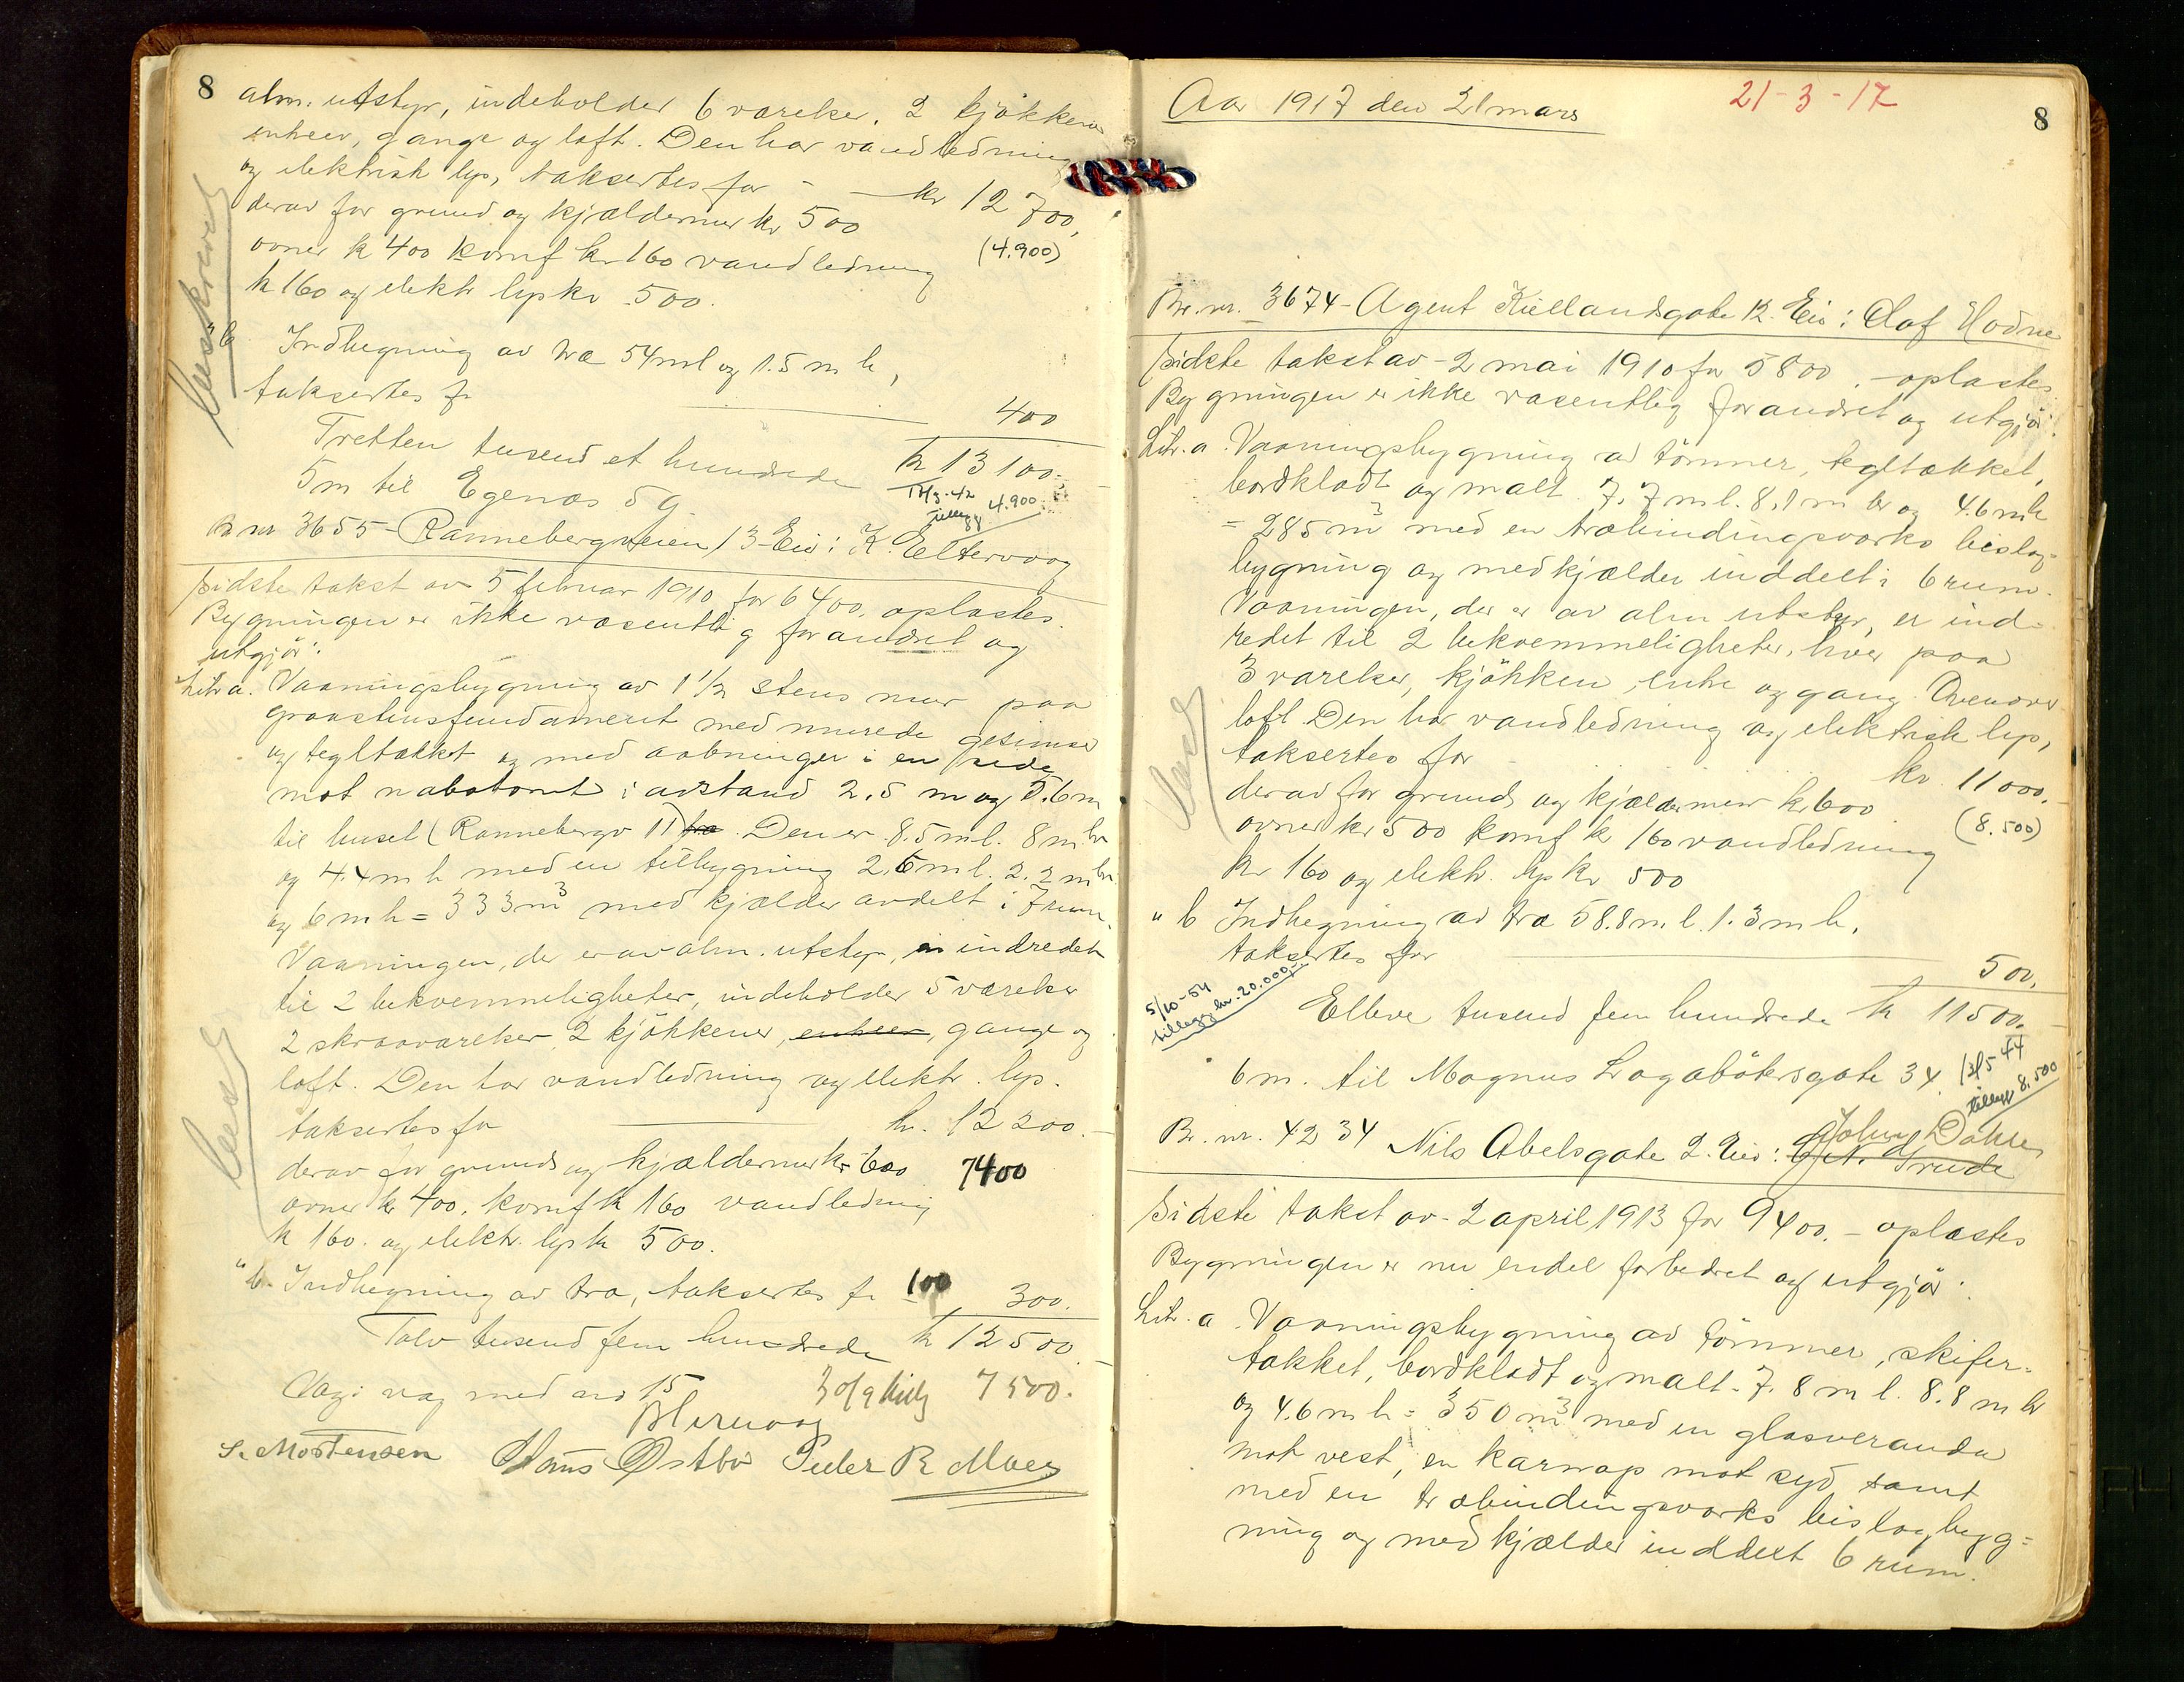 8
alm. utstyr, indeholder 6 værelser, 2 kjøkkener
enheer, gange og loft. Den har vandledning
og elektrisk lys, taksertes for - kr 12 700,
derav for grund og kjældermur kr 500
(4.900)
ovner k 400 komf kr 160 vandledning
k 160 og elektr lys kr 500.
" b Indhegning av træ 54 m l og 1.5 m h,
taksertes fr 400
Tretten tusend et hundrede kr 13 100.-
5 m til Egenæs 5 g
tillegg 4.900
Br nr 3655 - Rannebergveien 13 - Eis: K. Eltervaag
Sidste takst av 5 februar 1910 for 6400, oplæstes.
Bygningen er ikke væsentlig forandret og
utgjør:
Litr a. Vaaningsbygning av 1 1/2 stens mur paa
graastensfundament med murede gesimse
og tegltækket og med aabninger i en side
mot nabotomt i avstand 2.5 m og 5.6 m
til huset (Rannebergv 11). Den er 8.5 m l. 8 m br
og 4.4 m h med en tilbygning 2.6 m l. 2.2 m br
og 6 m h = 333 m³ med kjælder avdelt i 7 rum.
Vaaningen, der er av alm. utstyr, er indredet
til 2 bekvemmeligheter, indeholder 5 værelser
2 skraaværelser, 2 kjøkkener, enheer, gange og
loft. Den har vandledning og elektr. lys.
taksertes for kr. 12 200.-
derav for grund og kjældermur kr 600 7400
ovner kr 400. komf k 160 vandledning
k 160. og elektr. lys kr 500.
" b. Indhegning av træ, taksertes fr 100 300.
Tolv tusend fem hundrede kr 12500.-
Vag i væg med nr 15 30/9 7500.
S. Mortensen Hans Østbø Peder R Moen
8
21-3-17
Aar 1917 den 21 mars
Br. nr. 3674 - Agent Kiellandsgate 12. Eis: Olaf Hodne
Sidste takst av - 2 mai 1910 for 5800. - oplæstes
Bygningen er ikke væsentlig forandret og utgjør:
Litr. a. Vaaningsbygning av tømmer, tegltækket,
bordklædt og malt. 7.7 m l. 8.1 m br og 4.6 m h
= 285 m³ med en træbindingsverks bislag-
bygning og med kjælder inddelt i 6 rum.
Vaaningen, der er av alm utstyr, er ind-
redet til 2 bekvemmeligheter, hver paa
3 værelser, kjøkken, entre og gang. Ovenover
loft. Den har vandledning og elektrisk lys,
taksertes for kr. 11 000.-
derav for grund og kjældermur kr 600
(8.500)
ovner kr 500 komf k 160 vandledning
kr 160 og elektr. lys kr 500
" b Indhegning av træ 58.8 m. l. 1.3 m h.
taksertes for 500.
5/10-54
tillegg kr. 20.000,-
Elleve tusend fem hundrede kr 11500.-
6 m. til Magnus Lagabøtersgate 34.
12/5 44
tillegg 8.500
Br. nr. 4234 Nils Abelsgate 2. Eis: Johan Dahle
Sidste takst av - 2 april 1913 for 9400. - oplæstes
Bygningen er nu endel forbedret og utgjør:
Litr. a. Vaaningsbygning av tømmer, skifer-
tækket, bordklædt og malt - 7.8 m l. 8.8 m br
og 4.6 m h = 350 m³ med en glasveranda
mot vest, en karnap mot syd samt
med en træbindingsverks bislagbyg-
ning og med kjælder inddelt 6 rum.